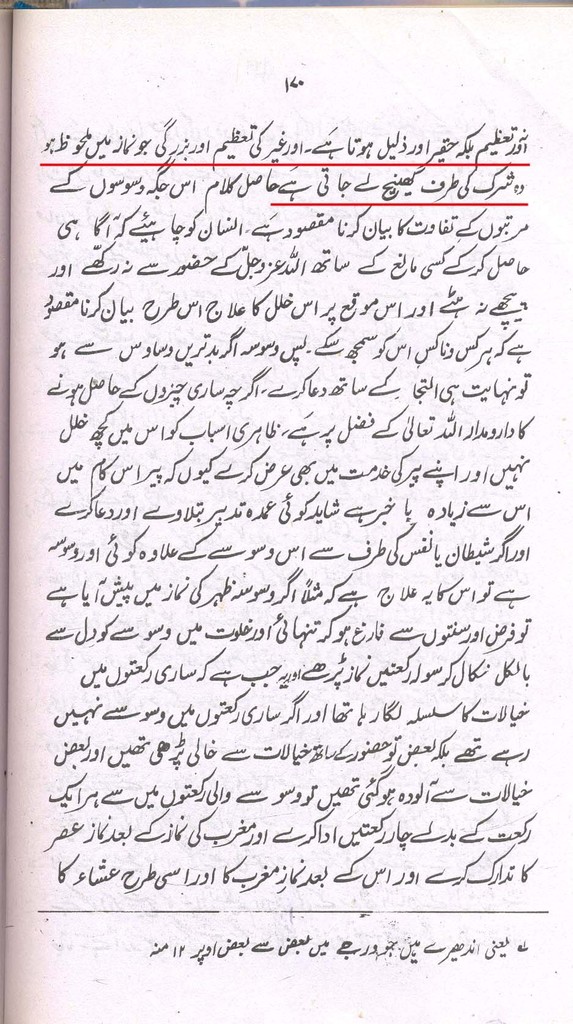 ۱۷۰
اور تعظیم بلکہ حقیر اور ذلیل ہوتا ہے۔ اور غیر کی تعظیم اور بزرگی جو نماز میں ملحوظ ہو
وہ شرک کی طرف کھینچ لے جاتی ہے حاصل کلام اس جگہ وسوسوں کے
مرتبوں کے تفاوت کا بیان کرنا مقصود ہے۔ انسان کو چاہیئے کہ آگاہی
حاصل کر کے کسی مانع کے ساتھ اللہ عزوجل کے حضور سے نہ رکھے اور
پیچھے نہ ہٹے اور اس موقع پر اس خلل کا علاج اس طرح بیان کرنا مقصود
ہے کہ ہر کس و ناکس اس کو سمجھ سکے۔ پس وسوسہ اگر بدترین وساوس سے ہو
تو نہایت ہی التجا کے ساتھ دعا کرے۔ اگرچہ ساری چیزوں کے حاصل ہونے
کا دارومدار اللہ تعالیٰ کے فضل پر ہے۔ ظاہری اسباب کو اس میں کچھ خلل
نہیں اور اپنے پیر کی خدمت میں بھی عرض کرے کیوں کہ پیر اس کام میں
اس سے زیادہ باخبر ہے شاید کوئی عمدہ تدبیر بتلاوے اور دعا کرے
اور اگر شیطان یا نفس کی طرف سے اس وسوسے کے علاوہ کوئی اور وسوسہ
ہے تو اس کا یہ علاج ہے کہ مثلاً اگر وسوسہ ظہر کی نماز میں پیش آیا ہے
تو فرض اور سنتوں سے فارغ ہو کر تنہائی اور خلوت میں وسوسے کو دل سے
بالکل نکال کر سولہ رکعتیں نماز پڑھے اور یہ جب ہے کہ ساری رکعتوں میں
خیالات کا سلسلہ لگا رہا تھا اور اگر ساری رکعتوں میں وسوسے نہیں
رہے تھے بلکہ بعض تو حضور کے ساتھ خیالات سے خالی پڑھی تھیں اور بعض
خیالات سے آلودہ ہو گئی تھیں تو وسوسے والی رکعتوں میں سے ہر ایک
رکعت کے بدلے چار رکعتیں ادا کرے اور مغرب کی نماز کے بعد نماز عصر
کا تدارک کرے اور اس کے بعد نماز مغرب کا اور اسی طرح عشاء کا
لہ یعنی اندھیرے ہیں جو درجے میں بعض سے بعض اوپر ۱۲ منہ